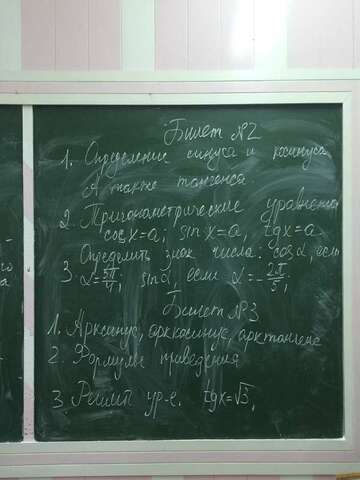 Билет №2
1. Определение синуса и косинуса
А также тангенса
2. Тригонометрические уравнения
cos x=a; sin x=a, tgx=a
3 Определить знак числа: cos α, если
α=5π/4, sin α, если α=-2π/5,
Билет №3
1. Арксинус, арккосинус, арктангенс
2. Формулы приведения
3. Решить ур-е. tgx=√3,